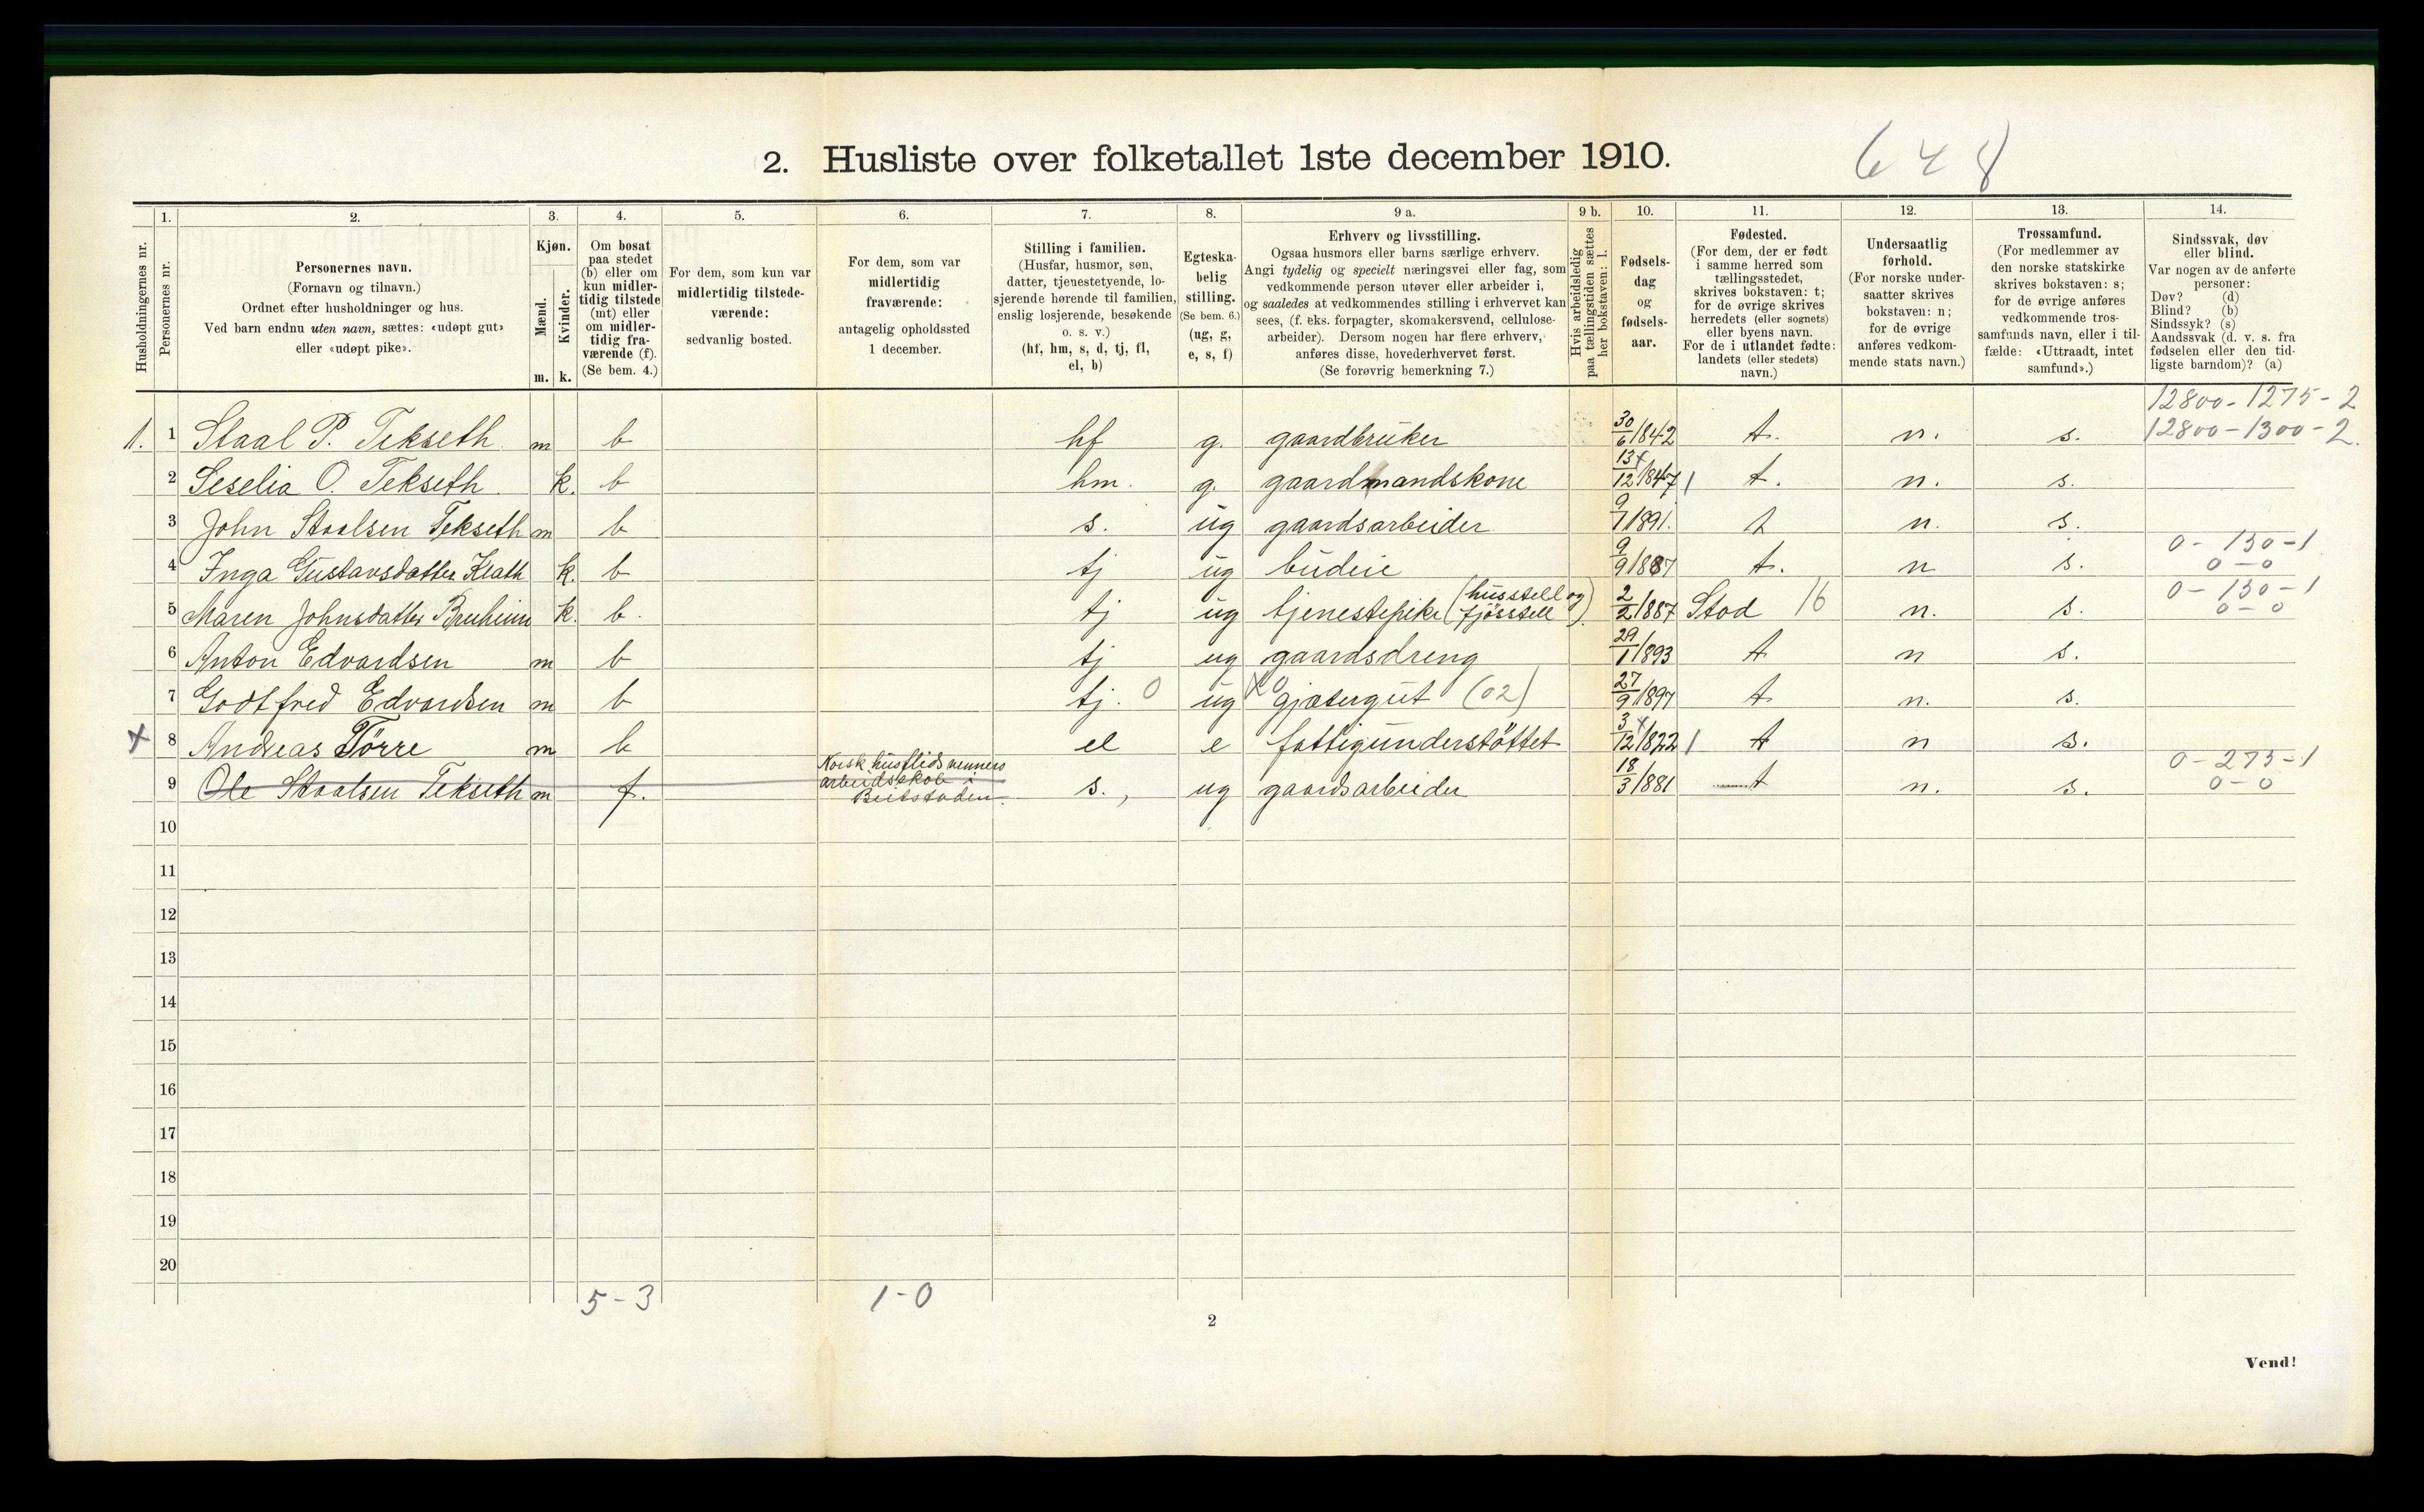 2. Husliste over folketallet 1ste december 1910.
648
Husholdningernes nr.
1.
Personernes nr.
2.
Personernes navn.
(Fornavn og tilnavn.)
Ordnet efter husholdninger og hus.
Ved barn endnu uten navn, sættes: «udøpt gut»
eller «udøpt pike».
3.
Kjøn.
Mænd.
Kvinder.
m. k.
4.
Om bosat
paa stedet
(b) eller om
kun midler-
tidig tilstede
(mt) eller
om midler-
tidig fra-
værende (f).
(Se bem. 4.)
5.
For dem, som kun var
midlertidig tilstede-
værende:
sedvanlig bosted.
6.
For dem, som var
midlertidig
fraværende:
antagelig opholdssted
1 december.
7.
Stilling i familien.
(Husfar, husmor, søn,
datter, tjenestetyende, lo-
sjerende hørende til familien,
enslig losjerende, besøkende
o. s. v.)
(hf, hm, s, d, tj, fl,
el, b)
8.
Egteska-
belig
stilling.
(Se bem. 6.)
(ug, g,
e, s, f)
9 a.
Erhverv og livsstilling.
Ogsaa husmors eller barns særlige erhverv.
Angi tydelig og specielt næringsvei eller fag, som
vedkommende person utøver eller arbeider i,
og saaledes at vedkommendes stilling i erhvervet kan
sees, (f. eks. forpagter, skomakersvend, cellulose-
arbeider). Dersom nogen har flere erhverv,
anføres disse, hovederhvervet først.
(Se forøvrig bemerkning 7.)
9 b.
Hvis arbeidsledig
paa tællingstiden sættes
her bokstaven: l.
10.
Fødsels-
dag
og
fødsels-
aar.
11.
Fødested.
(For dem, der er født
i samme herred som
tællingsstedet,
skrives bokstaven: t;
for de øvrige skrives
herredets (eller sognets)
eller byens navn.
For de i utlandet fødte:
landets (eller stedets)
navn.)
12.
Undersaatlig
forhold.
(For norske under-
saatter skrives
bokstaven: n;
for de øvrige
anføres vedkom-
mende stats navn.)
13.
Trossamfund.
(For medlemmer av
den norske statskirke
skrives bokstaven: s;
for de øvrige anføres
vedkommende tros-
samfunds navn, eller i til-
fælde: «Uttraadt, intet
samfund».)
14.
Sindssvak, døv
eller blind.
Var nogen av de anførte
personer:
Døv? (d)
Blind? (b)
Sindssyk? (s)
Aandssvak (d. v. s. fra
fødselen eller den tid-
ligste barndom)? (a)
12800-1275-2
1. 1 Staal P. Tekseth m b hf g. gaardbruker 30/6 1842 t. n. s. 12800-1300-2.
2 Seselia O. Tekseth k. b hm. g. gaardmandskone 13/12 1847 1 t. n. s.
3 John Staalsen Tekseth m b s. ug gaardsarbeider 9/7 1891. t n. s.
0-130-1
4 Inga Gustavsdatter k. b tj ug budeie 9/9 1887 t. n s. 0-0
0-130-1
5 Maren Johnsdatter k. b. tj ug tjenestepike (husstell og fjösstell) 2/2 1887 Stod 16 n. s. 0-0
6 Anton Edvardsen m b tj ug gaardsdreng 29/1 1893 t n s.
7 Godtfred Edvardsen m b tj. 0 ug gjætergut (02) 27/9 1897 t n. s.
x 8 Andreas Törre m b el e fattigunderstöttet 3/12 1822 1 t n s.
0-275-1
9 Ole Staalsen Tekseth m f. Norsk husflids venners arbeidsskole i Beitstaden. s. ug gaardsarbeider 18/3 1881 t n. s. 0-0
10
11
12
13
14
15
16
17
18
19
20
5-3 1-0
2
Vend!